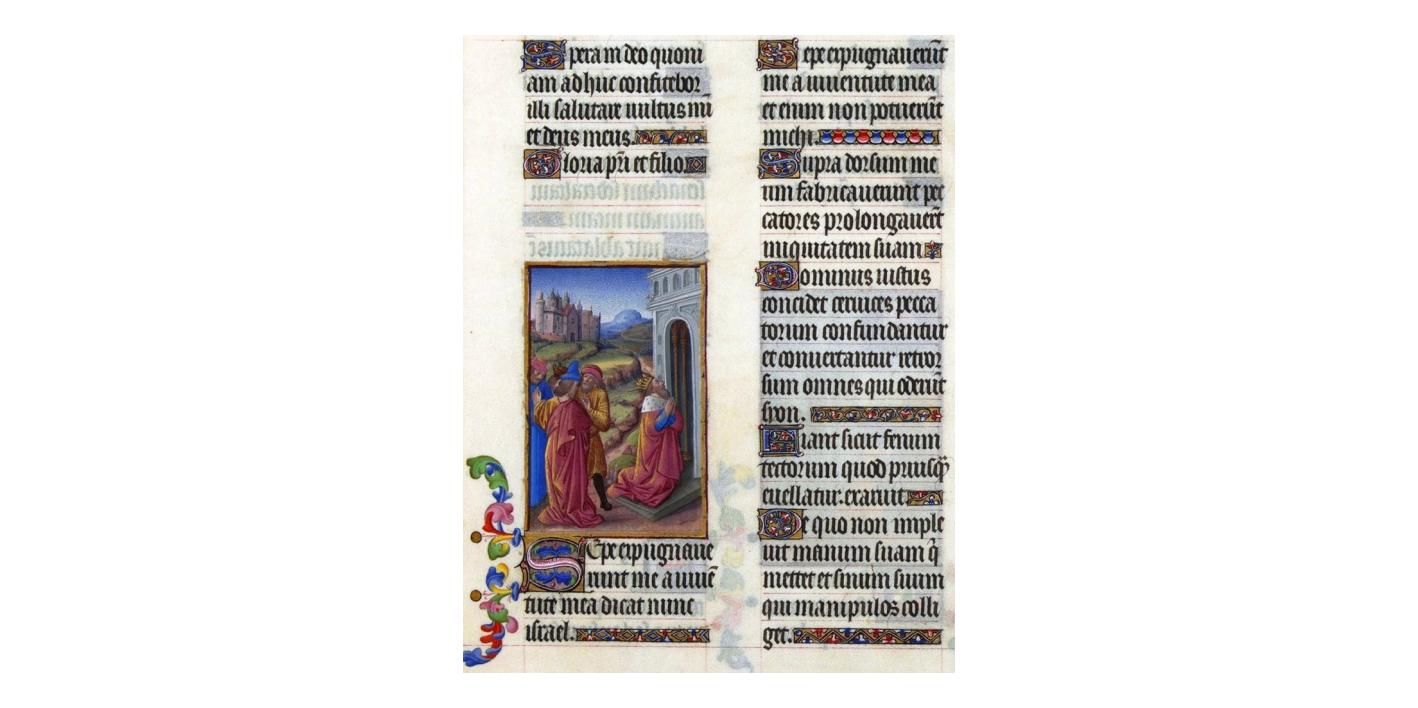 Spera in deo quoni
am adhuc confitebor
illi salutare uultus mĩ
et deus meus.
Gloria pr̃i et filio
Sepe expugnaue
runt me a iuuẽ
tute mea dicat nunc
israel.
Sepe expugnauerũt
me a iuuentute mea
et enim non potuerũt
michi.
Supra dorsum me
um fabricauerunt pec
catores prolongauer̃t
iniquitatem suam
Dominus iustus
concidet ceruices pecca
torum confundantur
et conuertantur retror
sum omnes qui oderũt
syon.
Fiant sicut fenum
tectorum quod priusq̃
euellatur. exaruit
De quo non imple
uit manum suam q̃
mettet et sinum suum
qui manipulos colli
get.